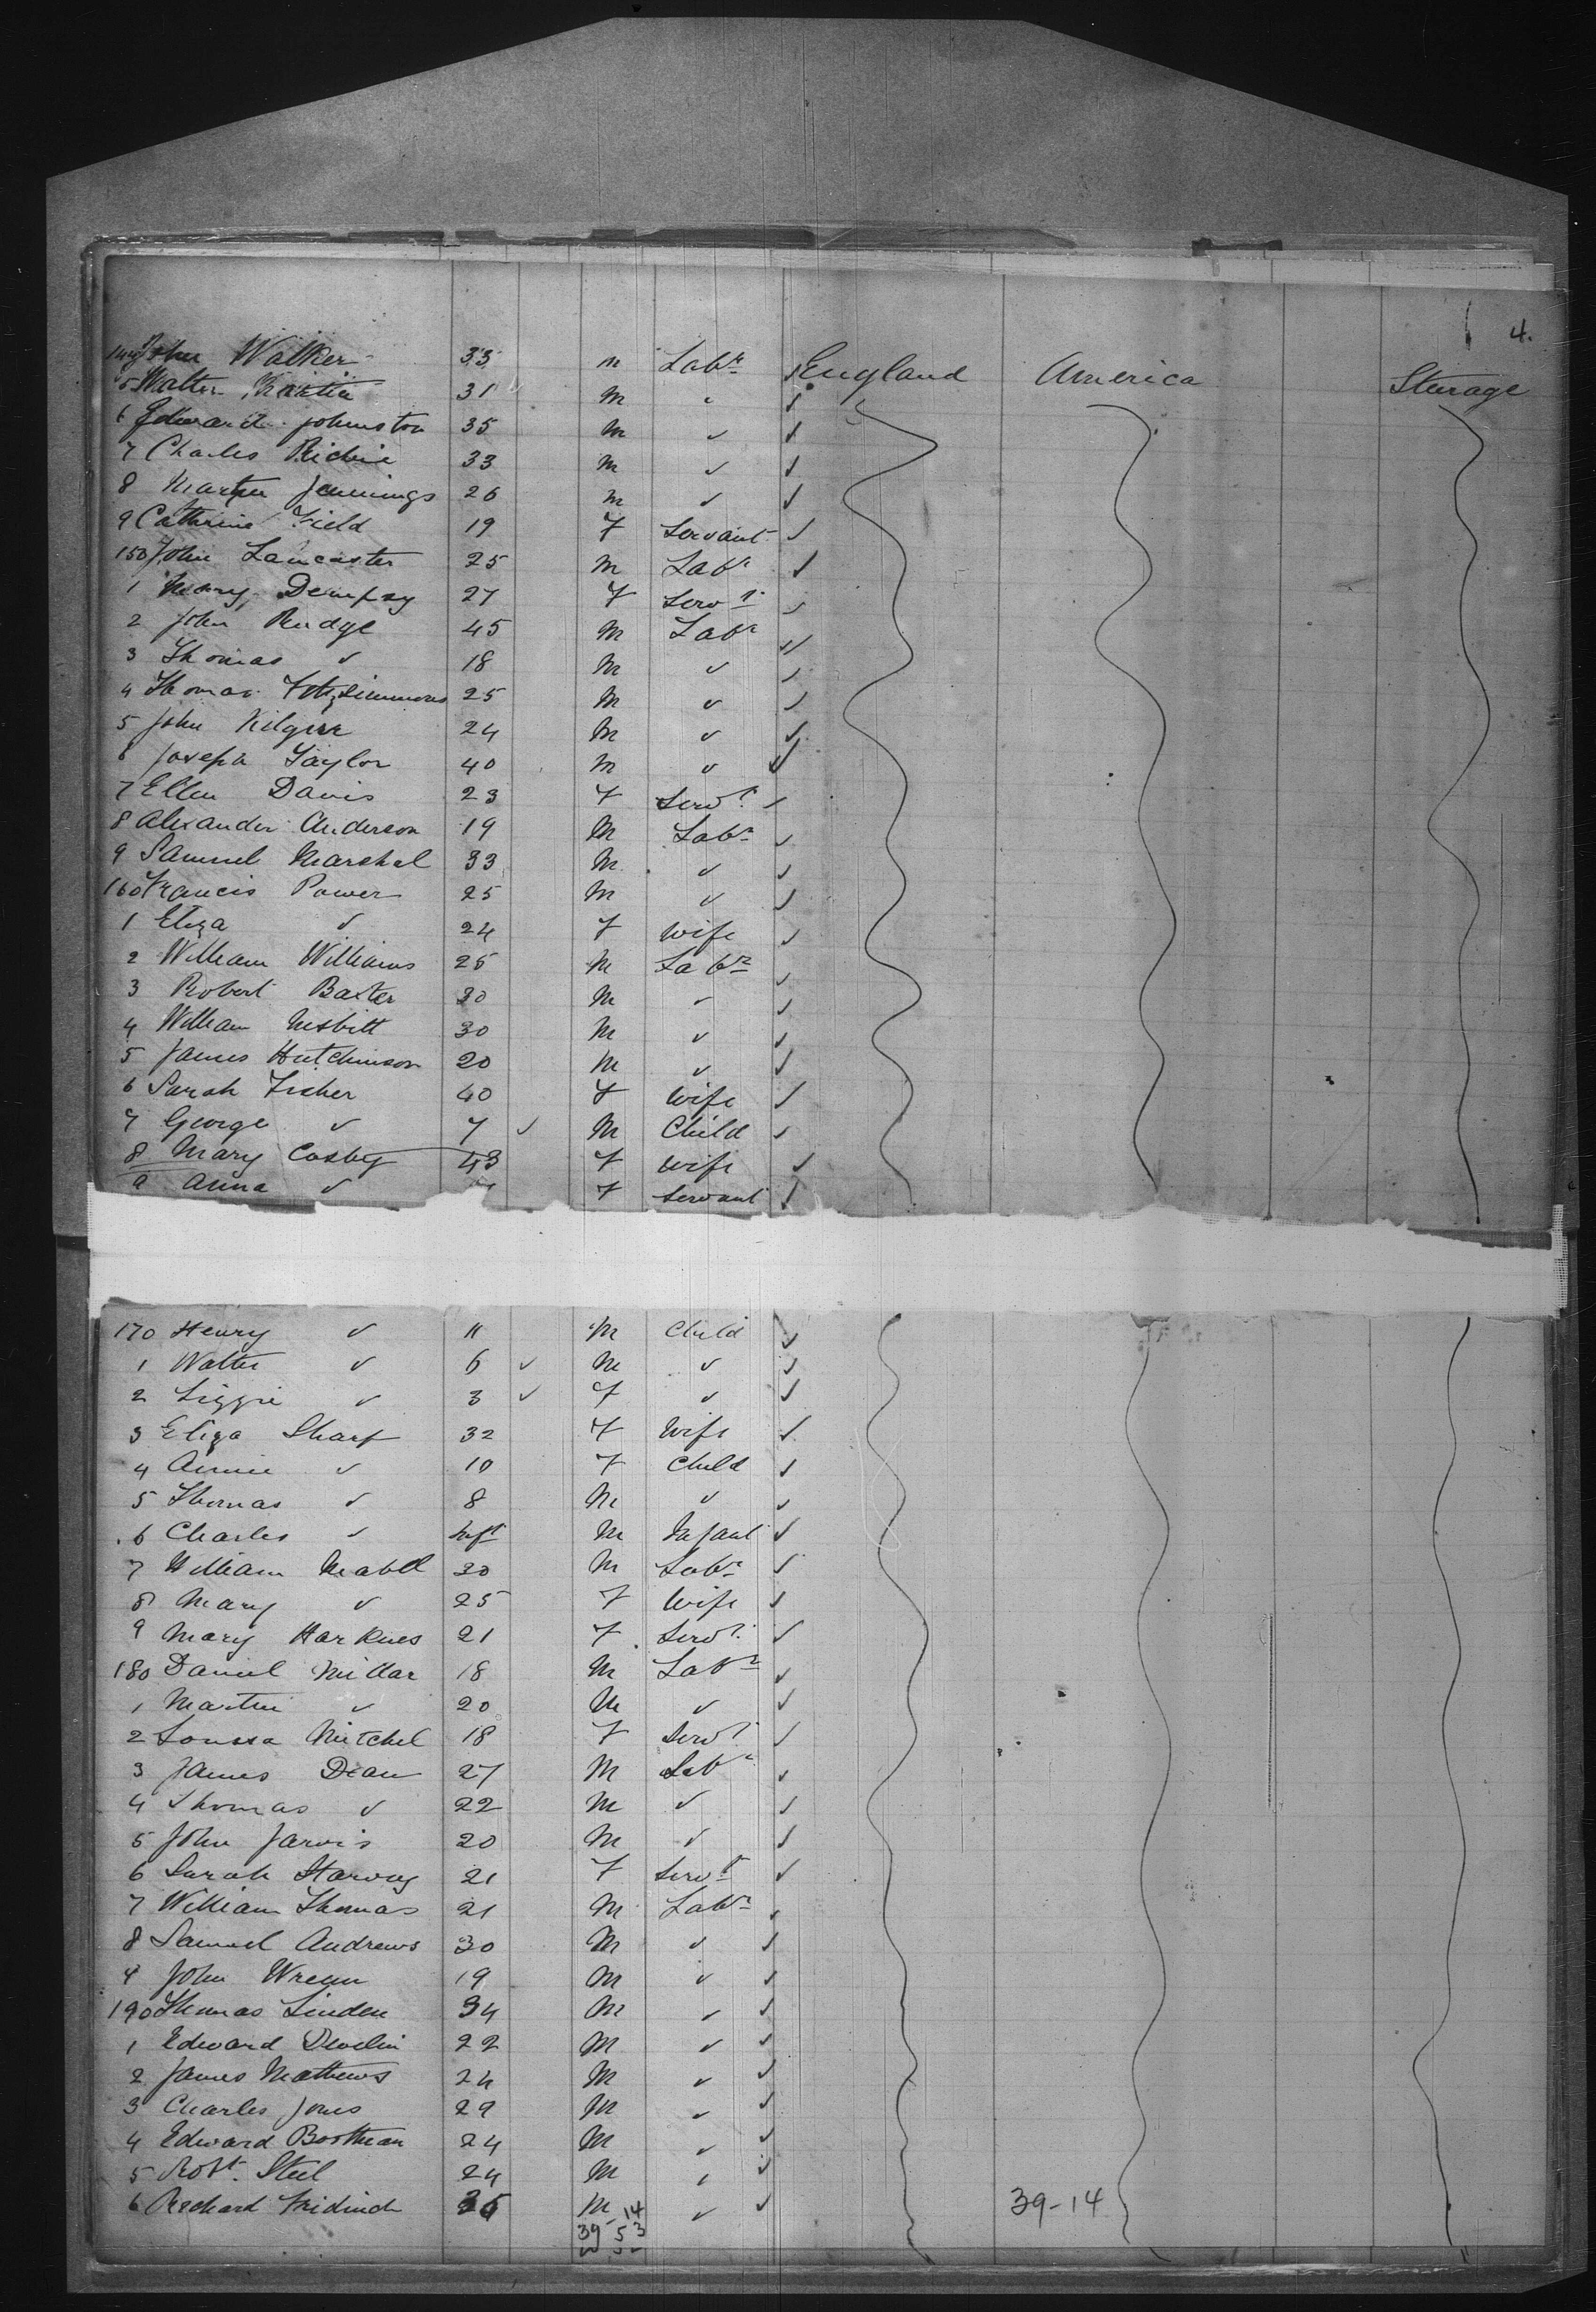 4.
144 John Walker 33 M Labr ✓ England America Sturage
5 Walter Martin 31 M " ✓
6 Edward Johnston 35 M ✓ ✓
7 Charles Richie 33 M ✓ ✓
8 Martin Jennings 26 M ✓ ✓
9 Cathrine Field 19 F Servant ✓
150 John Lancaster 25 M Labr ✓
1 Mary Dempsy 27 F Servt ✓
2 John Rudge 45 M Labr ✓
3 Thomas ✓ 18 M ✓ ✓
4 Thomas Fitzsimmons 25 M ✓ ✓
5 John Kilgarr 24 M ✓ ✓
6 Joseph Taylor 40 M ✓ ✓
7 Ellen Davis 23 F Servt ✓
8 Alexander Anderson 19 M Labr ✓
9 Samuel Marshal 33 M ✓ ✓
160 Francis Power 25 M ✓ ✓
1 Eliza ✓ 24 F Wife ✓
2 William Williams 25 M Labr ✓
3 Robert Baxter 30 M ✓ ✓
4 William Nesbitt 30 M ✓ ✓
5 James Hutchinson 20 M ✓ ✓
6 Sarah Fisher 40 F Wife ✓
7 George ✓ 7 ✓ M Child ✓
8 Mary Cosby 43 F Wife ✓
9 Anna ✓ F Servant ✓
170 Henry ✓ 11 M Child ✓
1 Walter ✓ 6 ✓ M ✓ ✓
2 Lizzie ✓ 3 ✓ F ✓ ✓
3 Eliza Sharp 32 F Wife ✓
4 Annie ✓ 10 F Child ✓
5 Thomas ✓ 8 M ✓ ✓
6 Charles ✓ Inft M Infant ✓
7 William Mabll 30 M Labr ✓
8 Mary ✓ 25 F Wife ✓
9 Mary Harknes 21 F Servt ✓
180 Daniel Millar 18 M Labr ✓
1 Martin ✓ 20 M ✓ ✓
2 Loussa Mitchel 18 F Servt ✓
3 James Dean 27 M Labr ✓
4 Thomas ✓ 22 M ✓ ✓
5 John Jarvis 20 M ✓ ✓
6 Sarah Harvey 21 F Servt ✓
7 William Thomas 21 M Labr ✓
8 Samuel Andrews 30 M ✓ ✓
9 John Wrenn 19 M ✓ ✓
190 Thomas Linden 34 M ✓ ✓
1 Edward Devlin 22 M ✓ ✓
2 James Mathews 24 M ✓ ✓
3 Charles Jones 29 M ✓ ✓
4 Edward Boothman 24 M ✓ ✓
5 Robt. Steel 24 M ✓ ✓
6 Richard M ✓ ✓ 39-14
14
39 53